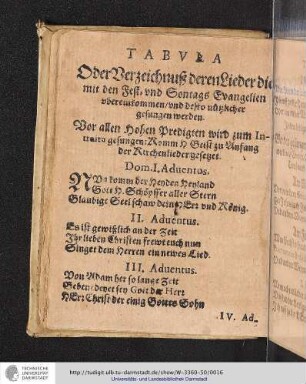 TABVLA
Oder Verzeichnuß deren Lieder die
mit den Fest, vnd Sontags Evangelien
vbereinkommen/vnd desto nützlicher
gesungen werden.
Vor allen Hohen Predigten wird zum In-
troitu gesungen: Komm H Geist zu Anfang
der Kirchenlieder gesetzet.
Dom. I. Aduentus.
NVn komm der Heyden Heyland
Gott H. Schöpffer aller Stern
Glaubige Seel schaw dein HErr vnd König.
II. Aduentus.
Es ist gewißlich an der Zeit
Ihr lieben Christen frewt euch nun
Singet dem Herren ein newes Lied.
III. Aduentus.
Von Adam her so lange Zeit
Gott der Herr
HErr Christ der einig Gottes Sohn
IV. Ad-
http://tudigit.ulb.tu-darmstadt.de/show/W-3360-50/0016
Universitäts- und Landesbibliothek Darmstadt
TECHNISCHE
UNIVERSITÄT
DARMSTADT